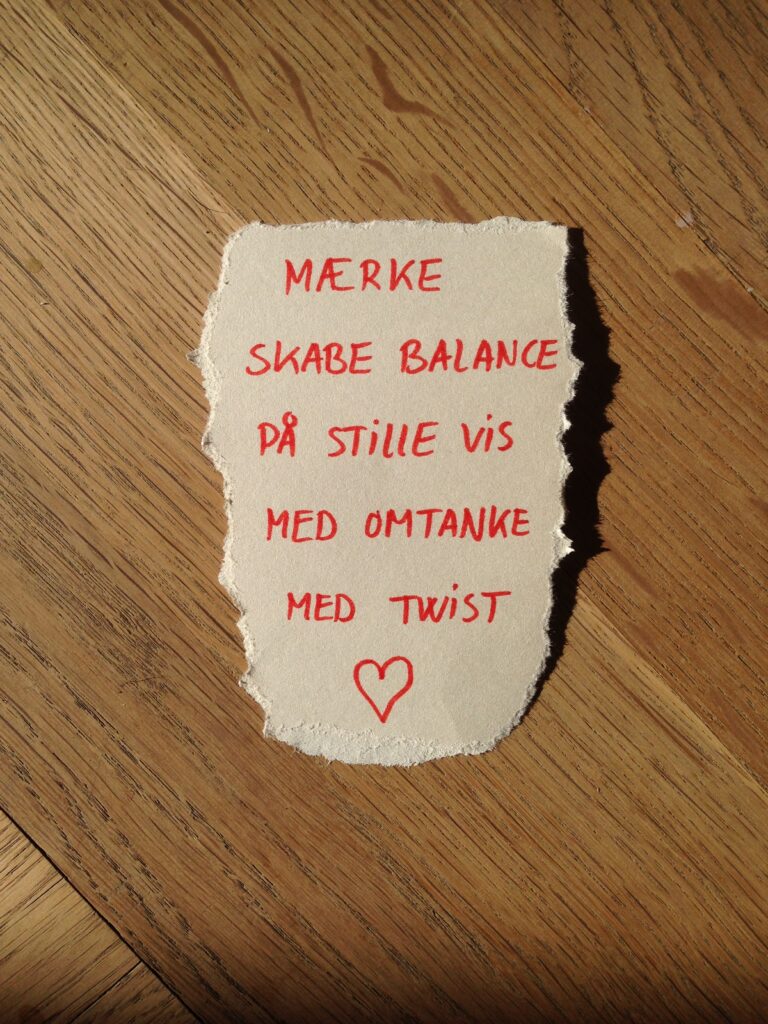 MÆRKE
SKABE BALANCE
PÅ STILLE VIS
MED OMTANKE
MED TWIST